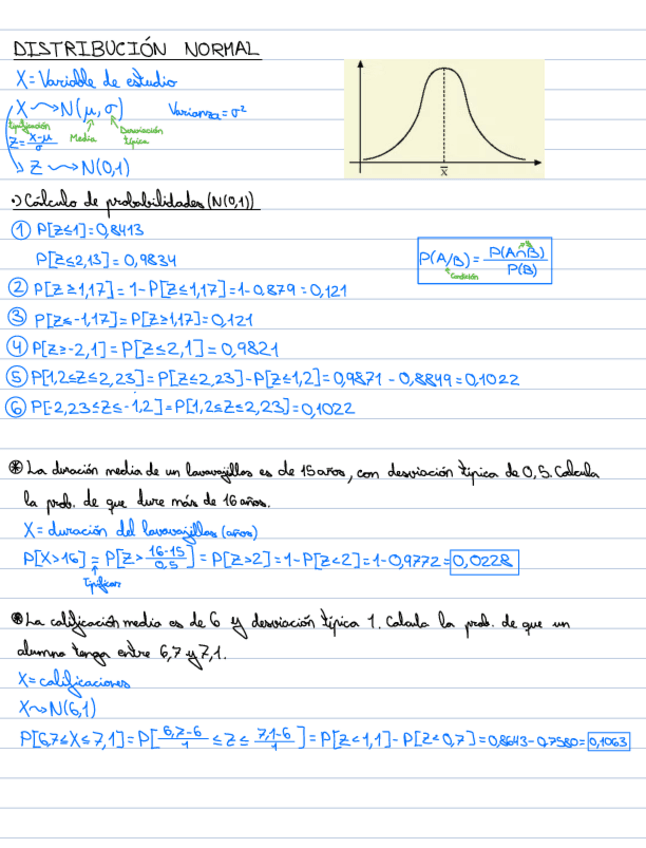 DISTRIBUCIÓN NORMAL
X = Variable de estudio
X ⟿ N(μ, σ) Varianza = σ²
tipificación Media Desviación típica
Z = X-μ/σ
Z ⟿ N(0,1)
x̄
·) Cálculo de probabilidades (N(0,1))
① P[Z≤1] = 0,8413
P[Z≤2,13] = 0,9834
P(A/B) = P(A∩B)/P(B)
Condición
② P[Z≥1,17] = 1-P[Z≤1,17] = 1-0,879 = 0,121
③ P[Z≤-1,17] = P[Z≥1,17] = 0,121
④ P[Z≥-2,1] = P[Z≤2,1] = 0,9821
⑤ P[1,2≤Z≤2,23] = P[Z≤2,23] - P[Z≤1,2] = 0,9871 - 0,8849 = 0,1022
⑥ P[-2,23≤Z≤-1,2] = P[1,2≤Z≤2,23] = 0,1022
⊛ La duración media de un lavavajillas es de 15 años, con desviación típica de 0,5. Calcula
la prob. de que dure más de 16 años.
X = duración del lavavajillas (años)
P[X>16] = P[Z > 16-15/0,5] = P[Z>2] = 1-P[Z<2] = 1-0,9772 = 0,0228
Tipificar
⊛ La calificación media es de 6 y desviación típica 1. Calcula la prob. de que un
alumno tenga entre 6,7 y 7,1.
X = calificaciones
X ⟿ N(6,1)
P[6,7≤X≤7,1] = P[6,7-6/1 ≤ Z ≤ 7,1-6/1] = P[Z<1,1] - P[Z<0,7] = 0,8643 - 0,7580 = 0,1063